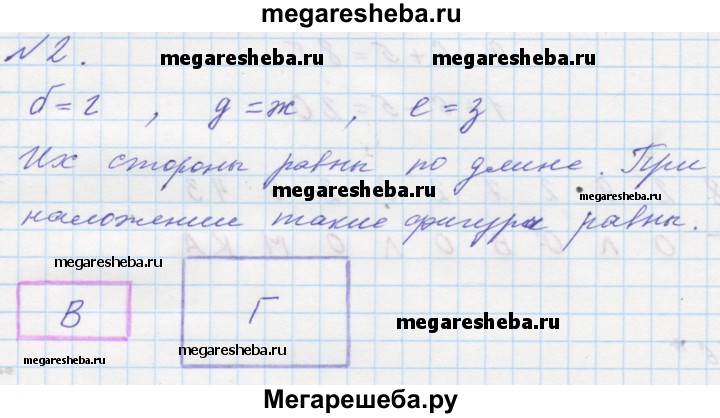 megaresheba.ru
№2.
megaresheba.ru megaresheba.ru
б=г , д=ж , е=з
Их стороны равны по длине. При
megaresheba.ru megaresheba.ru
наложении такие фигуры равны.
megaresheba.ru
В Г
megaresheba.ru
megaresheba.ru
megaresheba.ru
Мегарешеба.ру